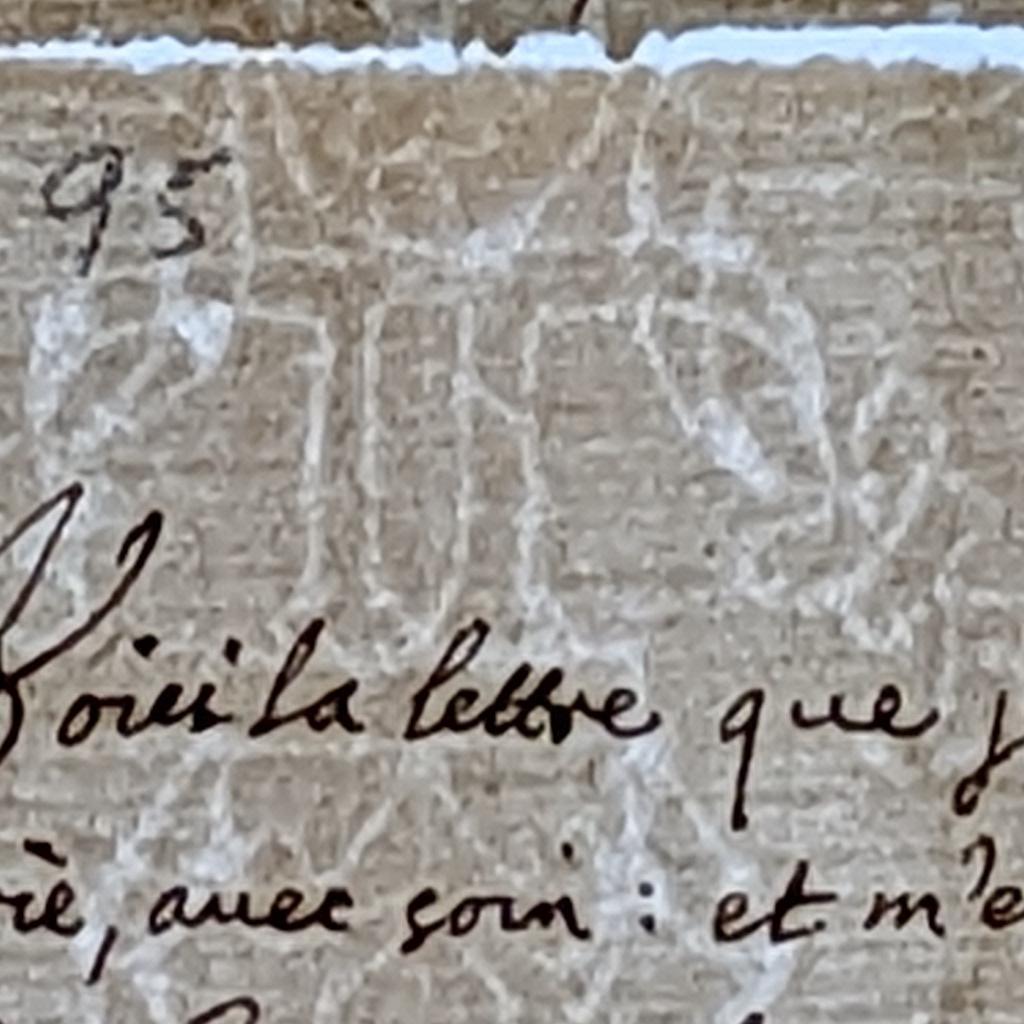 95
Voici la lettre que j
riè, avec soin : et m'e